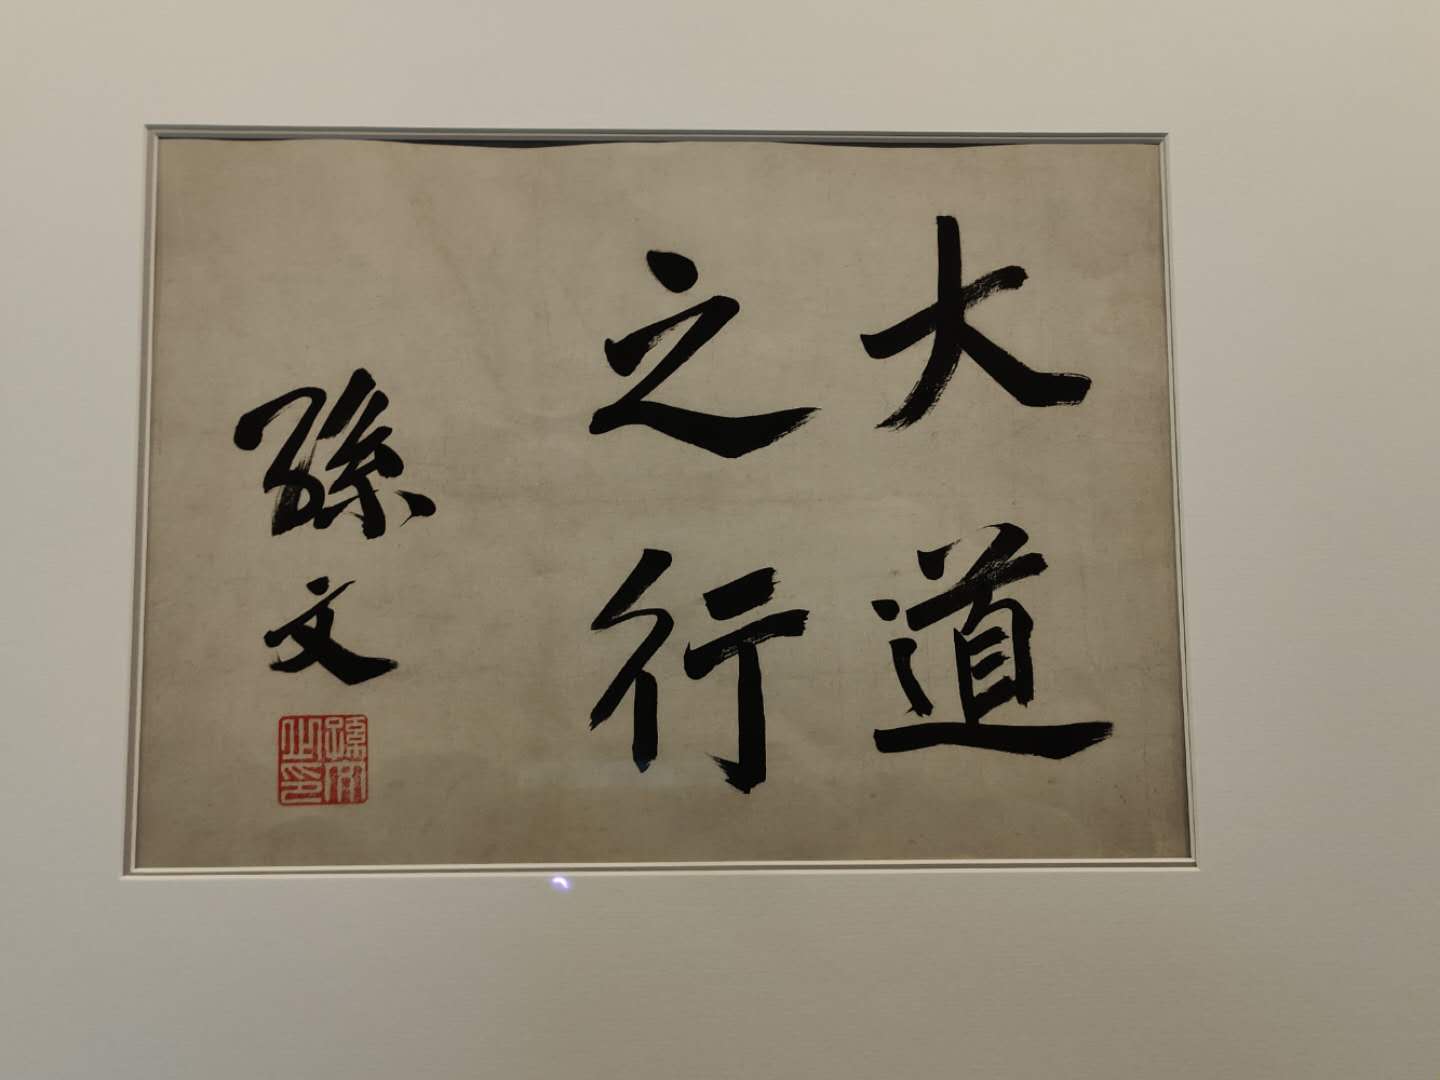 大道
之行
孫文
孫文之印